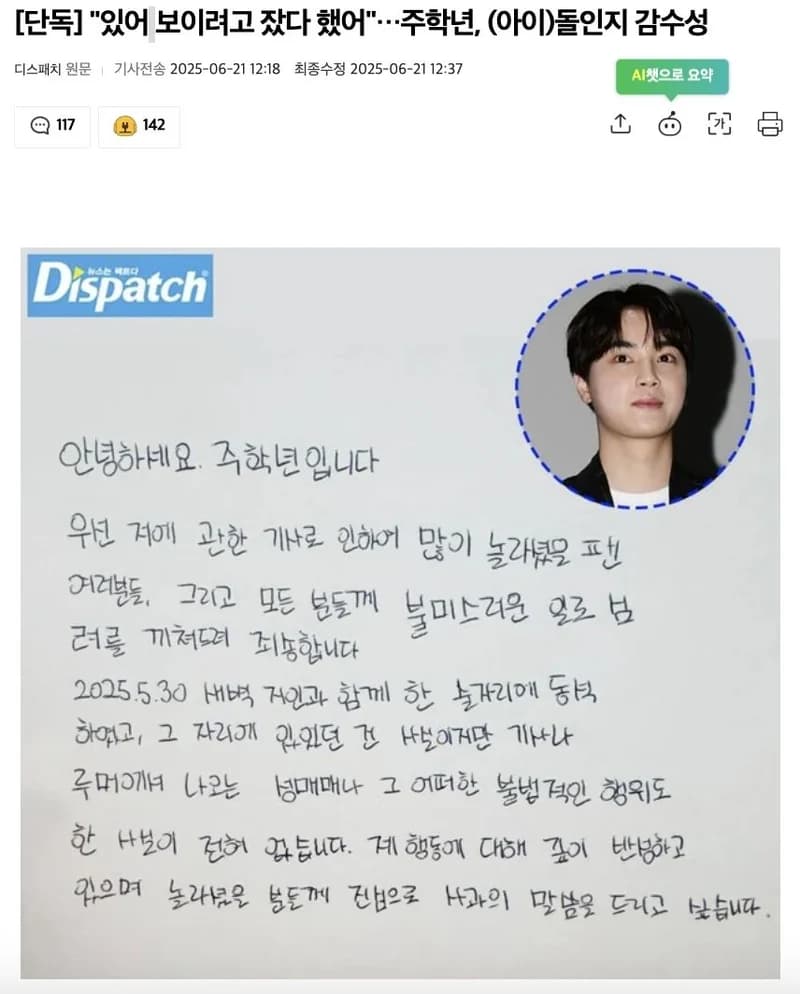 [단독] "있어 보이려고 잤다 했어"…주학년, (아이)돌인지 감수성
디스패치 원문 | 기사전송 2025-06-21 12:18 최종수정 2025-06-21 12:37
AI챗으로 요약
117 142
가
뉴스는 팩트다
Dispatch
안녕하세요. 주학년입니다
우선 저에 관한 기사로 인하여 많이 놀라셨을 팬
여러분들, 그리고 모든 분들께 불미스러운 일로 심
려를 끼쳐드려 죄송합니다
2025.5.30 새벽 지인과 함께 한 술자리에 동석
하였고, 그 자리에 있었던 건 사실이지만 기사나
루머에서 나오는 성매매나 그 어떠한 불법적인 행위도
한 사실이 전혀 없습니다. 제 행동에 대해 깊이 반성하고
있으며 놀라셨을 분들께 진심으로 사과의 말씀을 드리고 싶습니다.